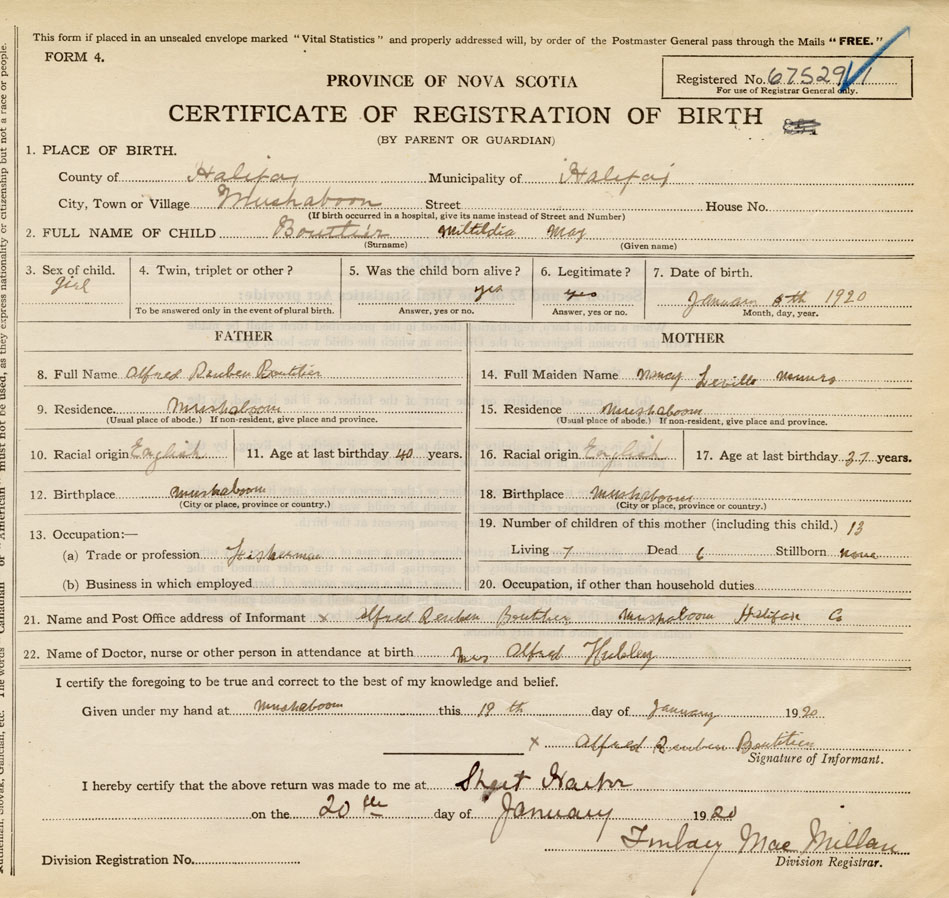 This form if placed in an unsealed envelope marked "Vital Statistics" and properly addressed will, by order of the Postmaster General pass through the Mails "FREE."
FORM 4.
Registered No. 675291
For use of Registrar General only.
PROVINCE OF NOVA SCOTIA
CERTIFICATE OF REGISTRATION OF BIRTH
(BY PARENT OR GUARDIAN)
1. PLACE OF BIRTH.
County of Halifax Municipality of Halifax
City, Town or Village Mushaboon Street House No.
(If birth occurred in a hospital, give its name instead of Street and Number)
2. FULL NAME OF CHILD Boutlier Miltildia May
(Surname) (Given name)
3. Sex of child. girl 4. Twin, triplet or other? 5. Was the child born alive? yes 6. Legitimate? yes 7. Date of birth. January 5th 1920
To be answered only in the event of plural birth. Answer, yes or no. Answer, yes or no. Month, day, year.
FATHER
8. Full Name Alfred Reuben Boutlier
9. Residence. Mushaboom
(Usual place of abode.) If non-resident, give place and province.
10. Racial origin English 11. Age at last birthday 40 years.
12. Birthplace Mushaboom
(City or place, province or country.)
13. Occupation:—
(a) Trade or profession Fisherman
(b) Business in which employed
MOTHER
14. Full Maiden Name Nancy Munro
15. Residence Mushaboom
(Usual place of abode.) If non-resident, give place and province.
16. Racial origin English 17. Age at last birthday 37 years.
18. Birthplace Mushaboom
(City or place, province or country.)
19. Number of children of this mother (including this child.) 13
Living 7 Dead 6 Stillborn none
20. Occupation, if other than household duties
21. Name and Post Office address of Informant x Alfred Reuben Boutlier Mushaboom Halifax Co
22. Name of Doctor, nurse or other person in attendance at birth Mrs Alfred Hubley
I certify the foregoing to be true and correct to the best of my knowledge and belief.
Given under my hand at Mushaboom this 19th day of January 1920
x Alfred Reuben Boutlier
Signature of Informant.
I hereby certify that the above return was made to me at Sheet Harbor
on the 20th day of January 1920
Finlay MacMillan
Division Registrar.
Division Registration No.